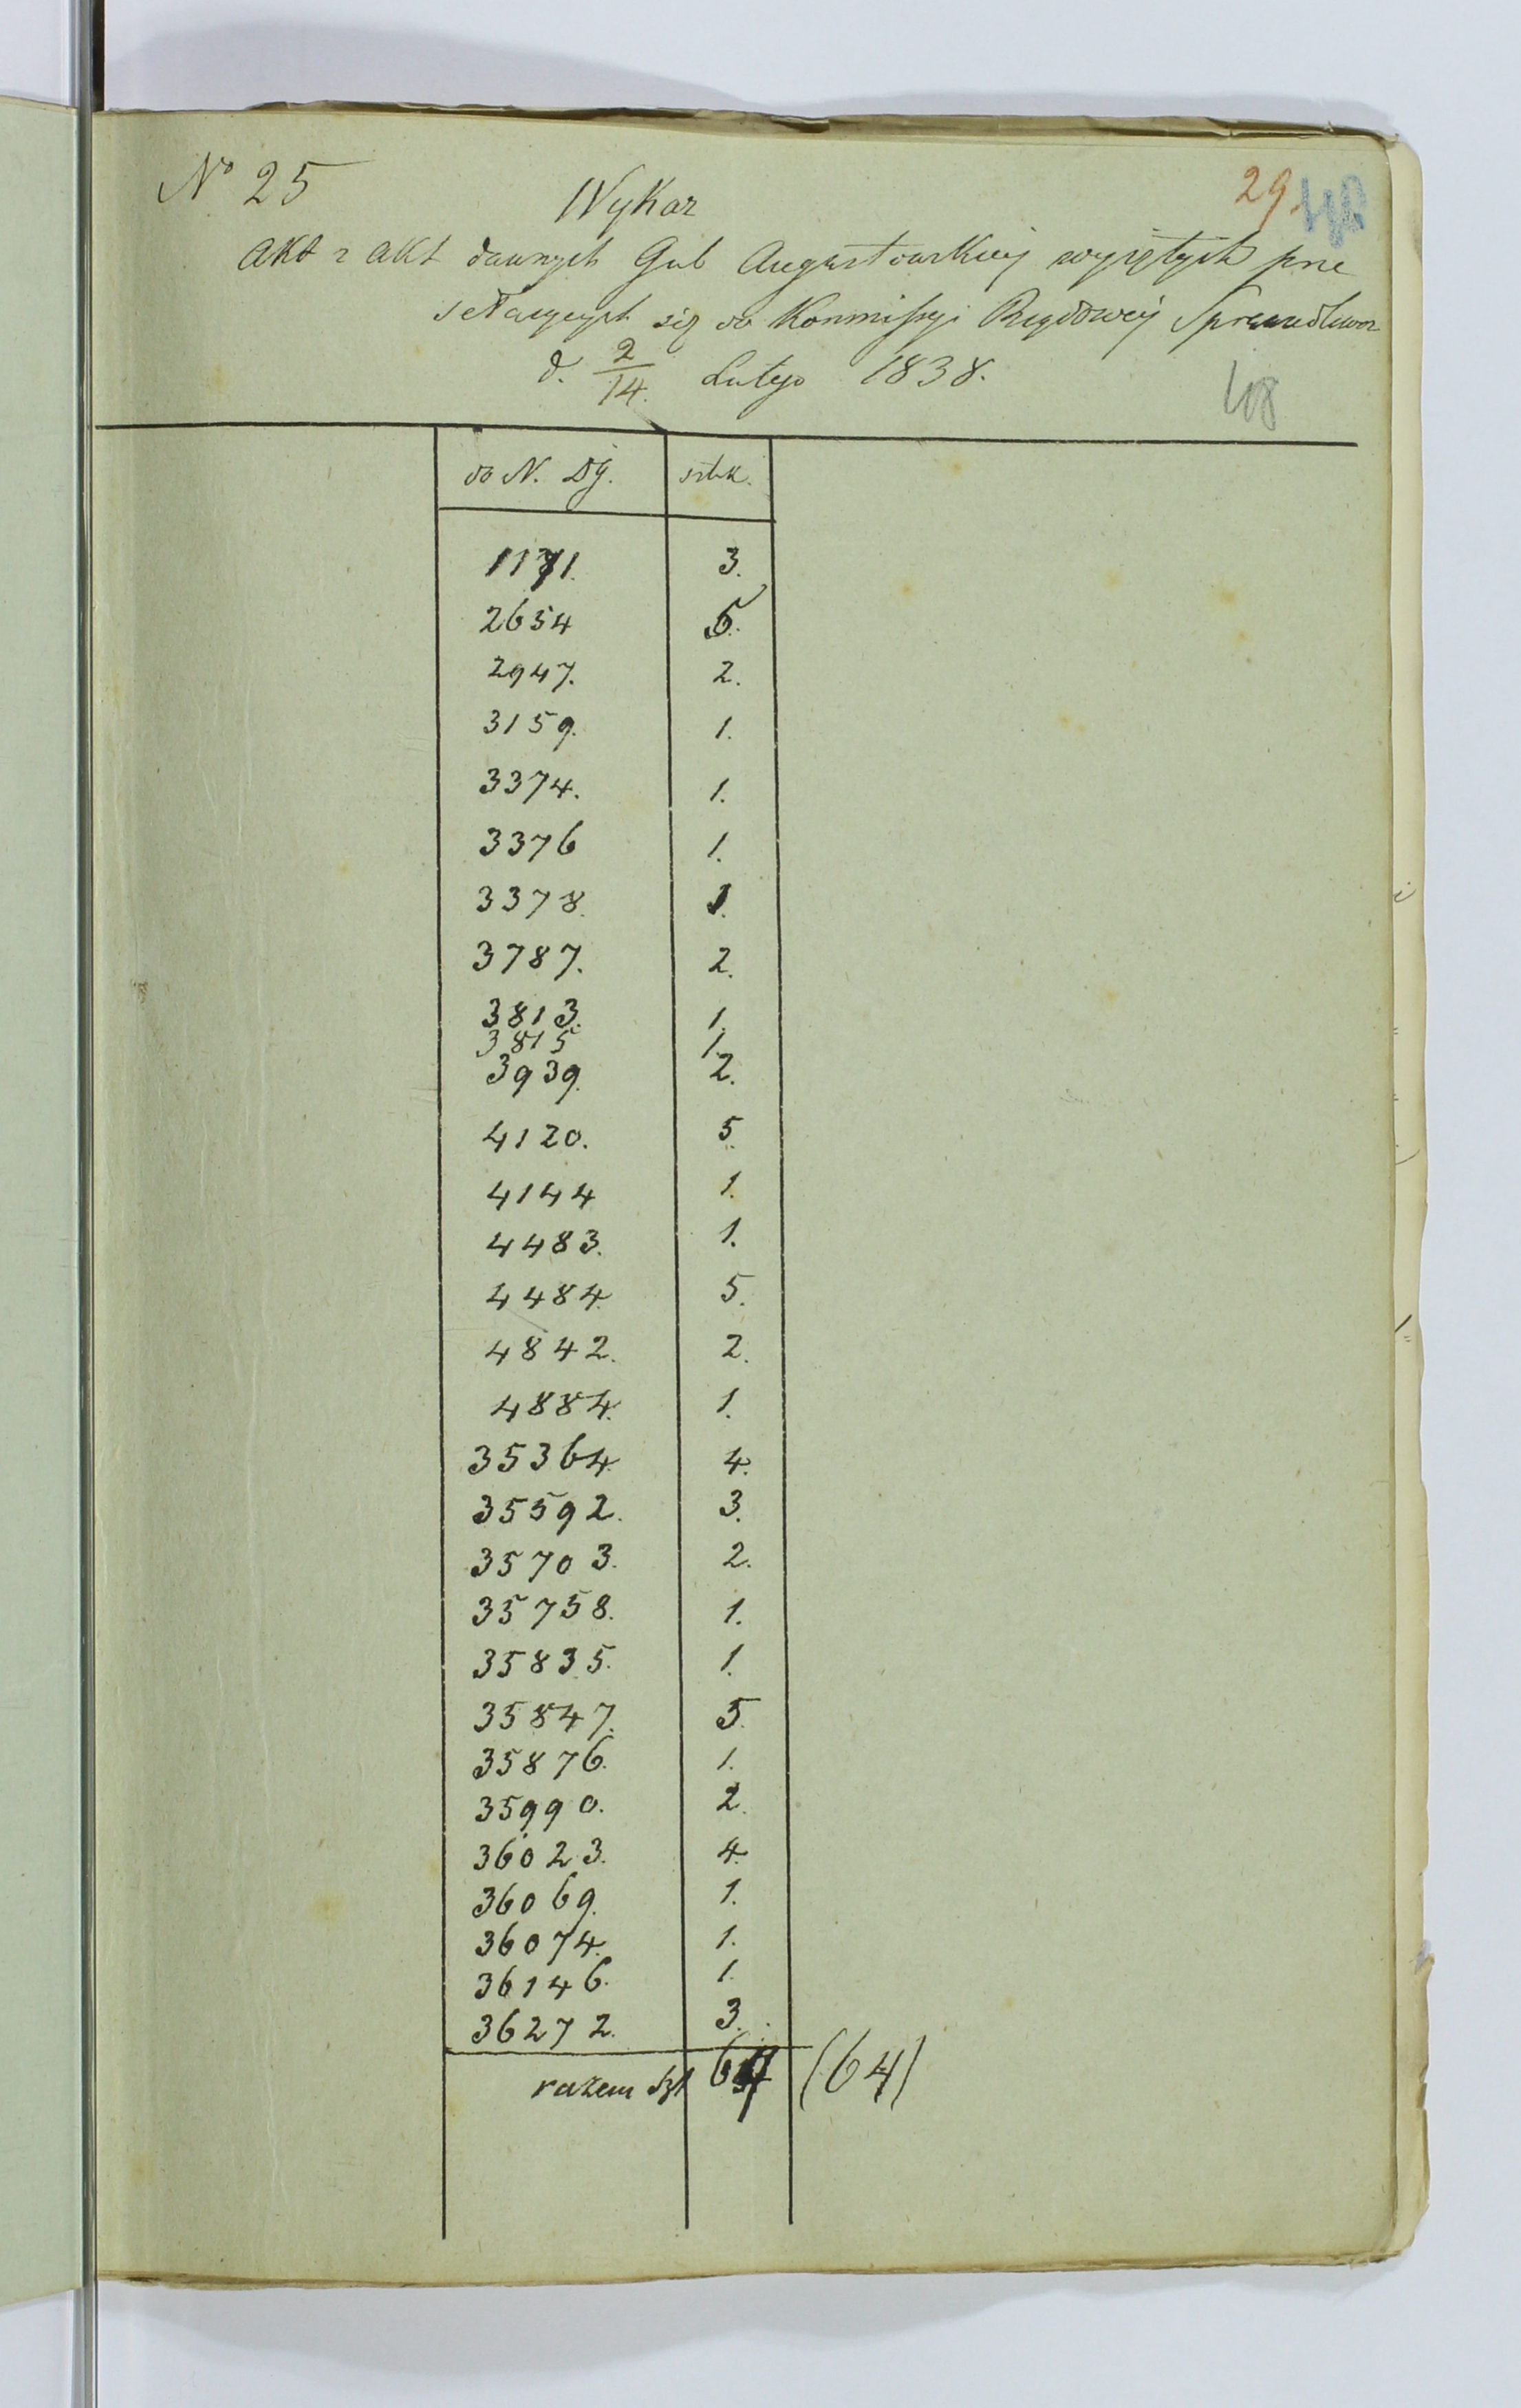 No 25
29.
Wykaz
akt z akt dawnych Gub Augustowskiey wyiętych prze
sełaiących się do Kommissyi Rządowey Sprawiedliwoś
d. 2/14. Lutego 1838.
48
do N. Dz. sztuk.
1171. 3.
2654 5.
2947. 2.
3159. 1.
3374. 1.
3376 1.
3378. 1.
3787. 2.
3813. 1.
3815 1.
3939. 2.
4120. 5.
4144 1.
4483. 1.
4484. 5.
4842. 2.
4884. 1.
35364. 4.
35592. 3.
35703. 2.
35758. 1.
35835. 1.
35847. 5.
35876. 1.
35990. 2.
36023. 4.
36069. 1.
36074. 1.
36146. 1.
36272. 3.
razem szt (64)